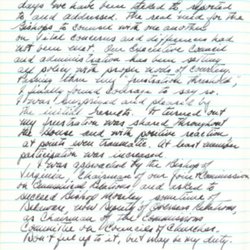 days we have been started to reported
to and addressed. The real need for the
Bishops to counsel with one another
on various concerns and objectives had
not been met. Our Executive Council
and administration has been setting
our policy with proper mode of courtesy.
Feeling this any frustration
I finally found courage to say so.
I was surprised and pleased by
the initial results. It turned out
my frustration was shared throughout
the House and with positive reaction,
at points even traumatic. At least member
participation was increased.
I was approached by the Bishop of
Virginia, Chairman of our Joint Commission
on Ecumenical Relations and asked to
succeed Bishop sometimes of
Delaware, now Deputy of Overseas Relations,
as Chairman of the Commissions
Committee on Councils of Churches.
Don't feel up to it, but may be my duty